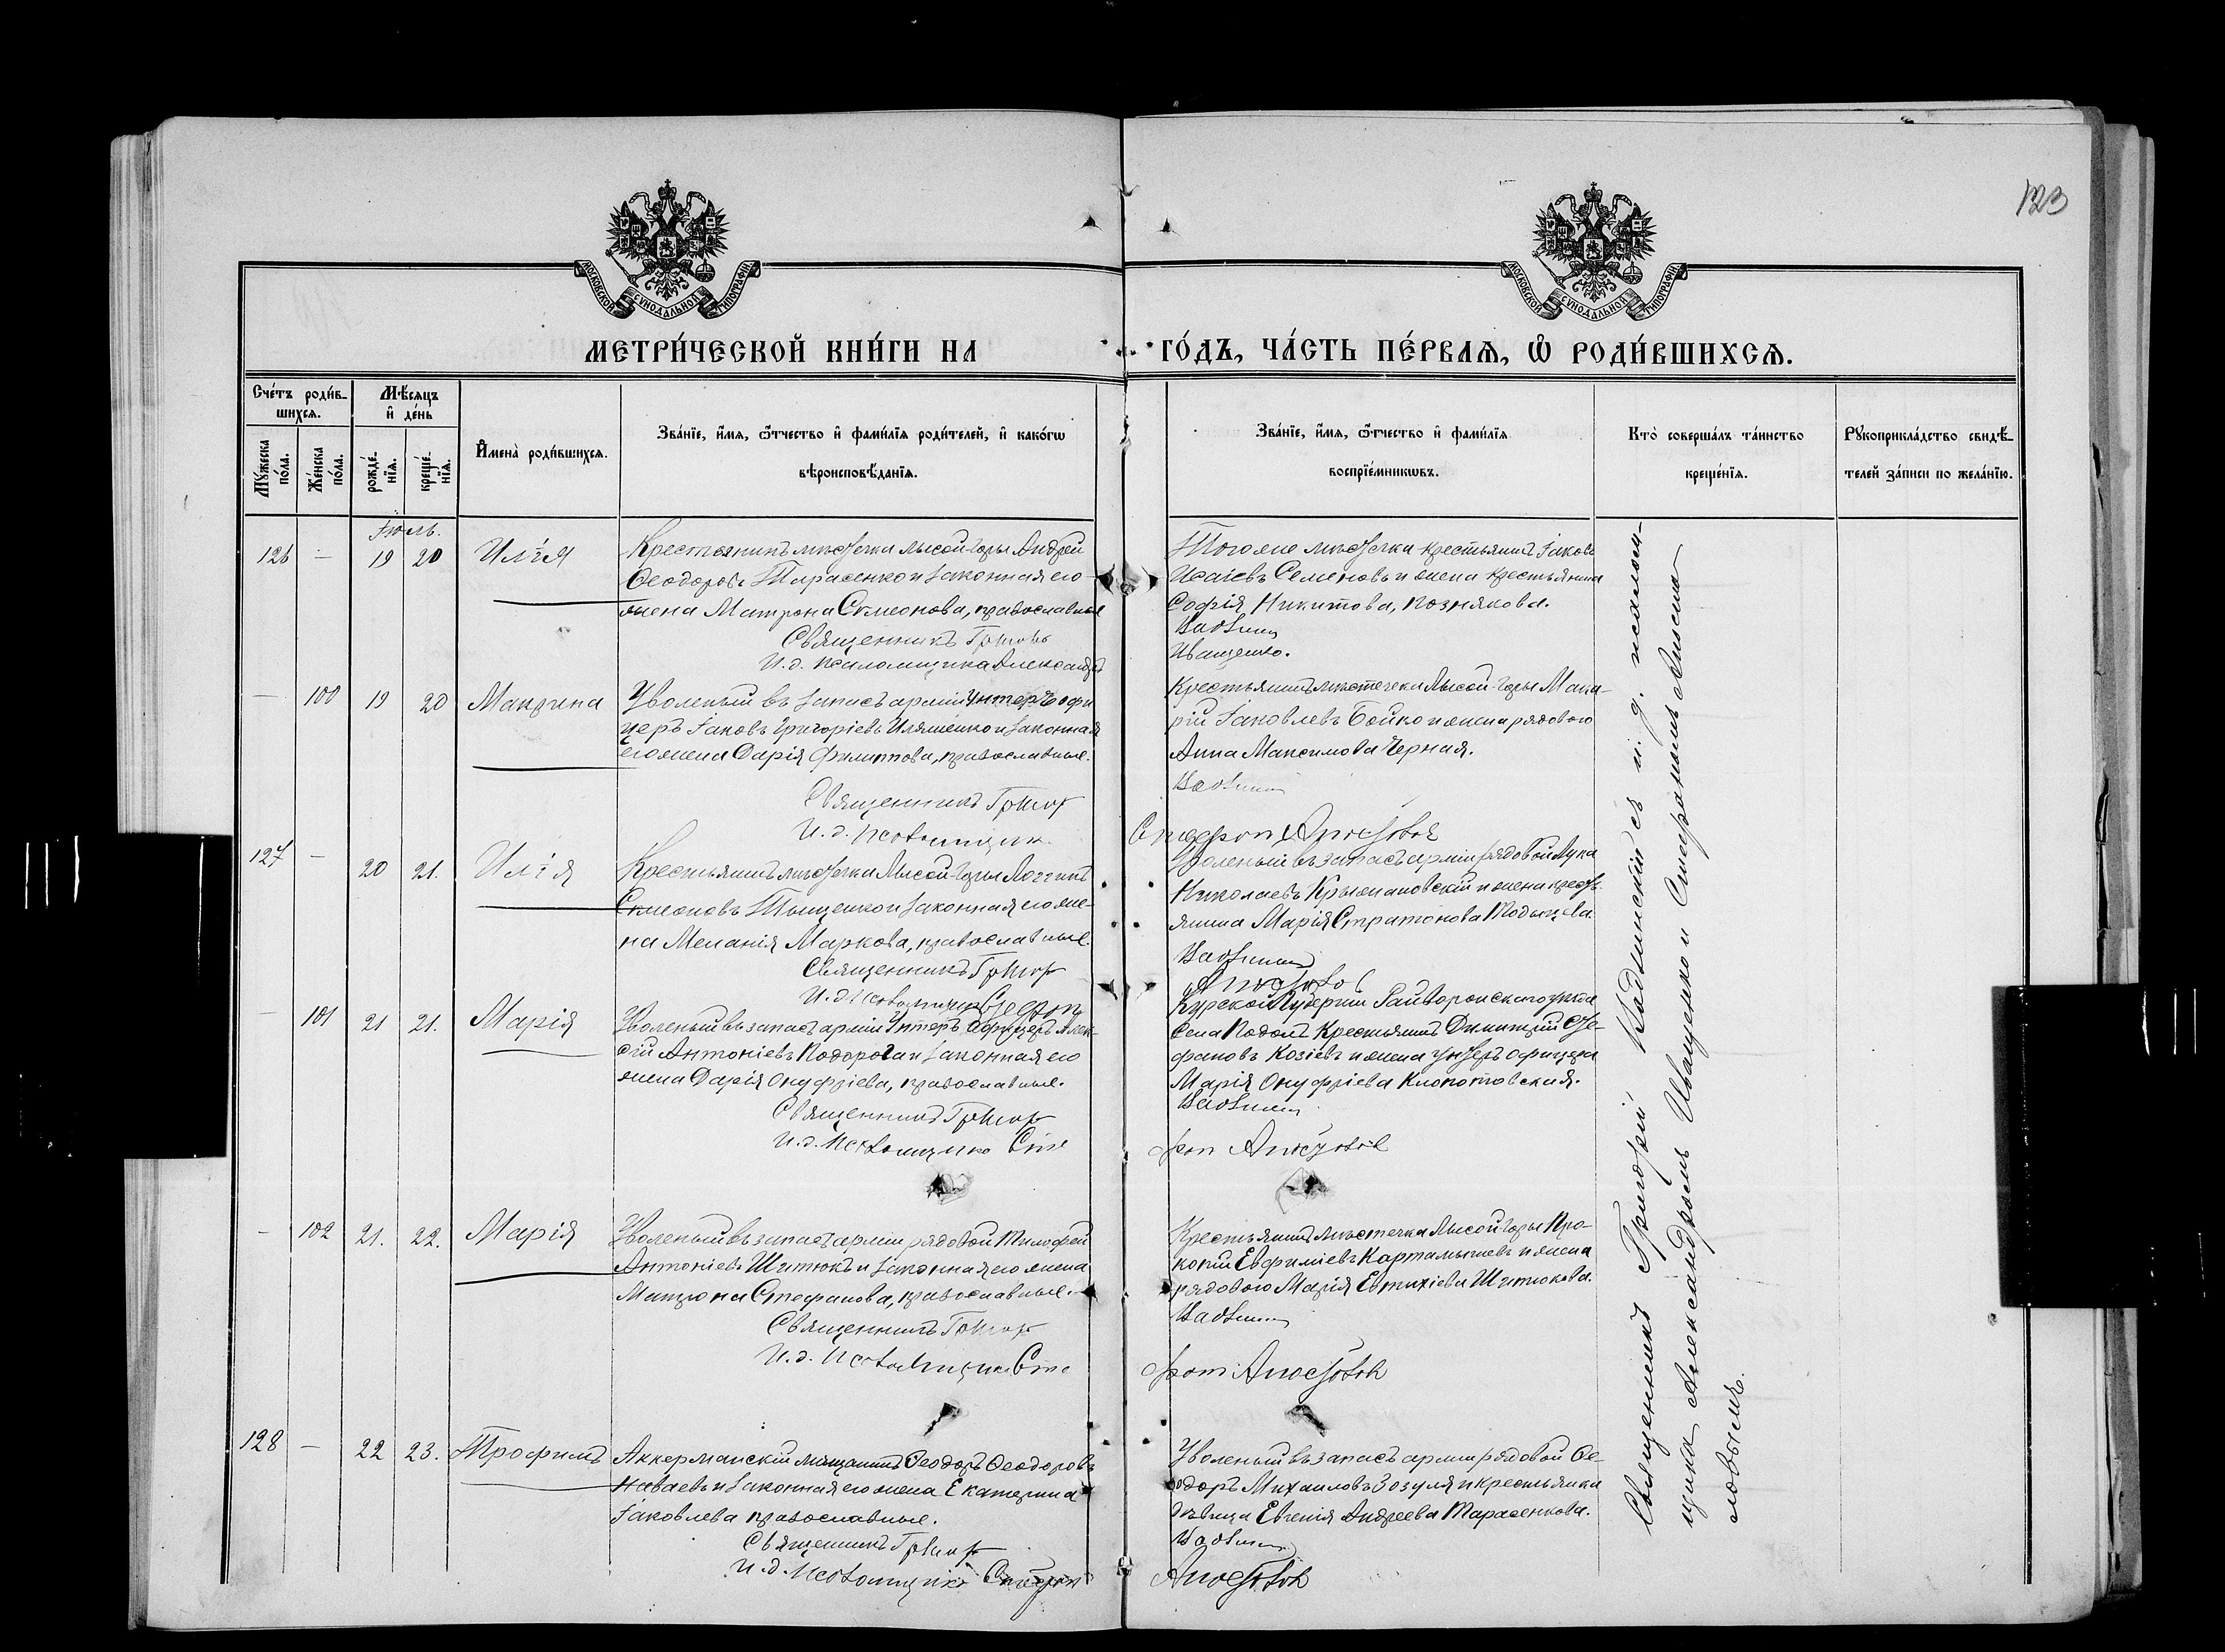 123
МОСКОВСКОЙ СѴНОДАЛЬНОЙ ТИПОГРАФІИ
МОСКОВСКОЙ СѴНОДАЛЬНОЙ ТИПОГРАФІИ
МЕТРИ́ЧЕСКОЙ КНИ́ГИ НА ГО́ДЪ, ЧА́СТЬ ПЕ́РВАѦ, Ѡ҆ РОДИ́ВШИХСѦ.
Сче́тъ роди́в-
шихсѧ.
Мꙋ́жеска по́ла.
Же́нска по́ла.
Мѣ́сѧцъ
и҆ де́нь
рожде́-
нїѧ.
креще́-
нїѧ.
И҆мена̀ роди́вшихсѧ.
Зва́нїе, и҆́мѧ, ѻ҆́тчество и҆ фами́лїѧ роди́телей, и҆ како́гѡ
вѣроисповѣ́данїѧ.
Зва́нїе, и҆́мѧ, ѻ҆́тчество и҆ фами́лїѧ
воспрїе́мникѡвъ.
Кто̀ соверша́лъ та́инство
креще́нїѧ.
Рꙋкоприкла́дство свидѣ́-
телей за́писи по жела́нїю.
Іюль.
126 — 19 20 Илія
Крестьянинъ мѣстечка Лысой-Горы Андрей
Ѳеодоровъ Тарасенко и законная его
жена Матрона Симеонова, православные
Священникъ Григорій
И.д. псаломщика Александръ
Того же мѣстечка крестьянинъ Іаковъ
Исаіевъ Семеновъ и жена крестьянина
Софія Никитова, Познякова.
Иващенко.
— 100 19 20 Макрина
Уволеный въ запасъ арміи унтеръ-офи
церъ Іаковъ Григоріевъ Иляшенко и законная
его жена Дарія Филиппова, православные.
Священникъ Григор
И.д. псаломщик
Крестьянинъ мѣстечка Лысой-Горы Мака-
рій Іаковлевъ Бойко и жена рядового
Анна Максимова Черная.
Стефанъ Апостоловъ
127 — 20 21. Илія
Крестьянинъ мѣстечка Лысой-Горы Логгинъ
Симеоновъ Тыщенко и законная его же-
на Меланія Маркова, православные.
Священникъ Григор
И.д. псаломщика Стефан
Уволеный въ запасъ арміи рядовой Лука
Николаевъ Крыжановскій и жена кресть-
янина Марія Стратонова
Апостолов
— 101 21 21. Марія
Уволеный въ запасъ арміи унтеръ офицеръ Алек-
сій Антоніевъ Подорога и законная его
жена Дарія Онуфріева, православные.
Священникъ Григор
И.д. псаломщика Сте
Курской Губерніи Грайворонскаго уѣзда
села Подолъ крестьянинъ Димитрій Сте-
фановъ Козіевъ и жена унтеръ офицера
Марія Онуфріева Клопотовская.
фан Апостолов
— 102 21. 22. Марія
Уволеный въ запасъ арміи рядовой Тимофей
Антоніевъ Шитюкъ и законная его жена
Матрона Стефанова, православные.
Священникъ Григор
И.д. псаломщика Сте
Крестьянинъ мѣстечка Лысой-Горы Про-
копій Евфиміевъ Картамышевъ и жена
рядового Марія Евтихіева Шитюкова.
фан Апостолов
128 — 22 23. Трофимъ
Аккерманскій мѣщанинъ Ѳеодоръ Ѳеодоровъ
и законная его жена Екатерина
Іаковлева православные.
Священникъ Григор
И.д. псаломщика Стефан
Уволеный въ запасъ арміи рядовой Ѳе-
одоръ Михаиловъ Зозуля и крестьянка
дѣвица Евгенія Андреева Тарасенкова.
Апостолов
Священникъ Григорій съ и.д. псаломщ-
щика Александромъ Иващенко и Стефаномъ Апосто-
ловымъ.